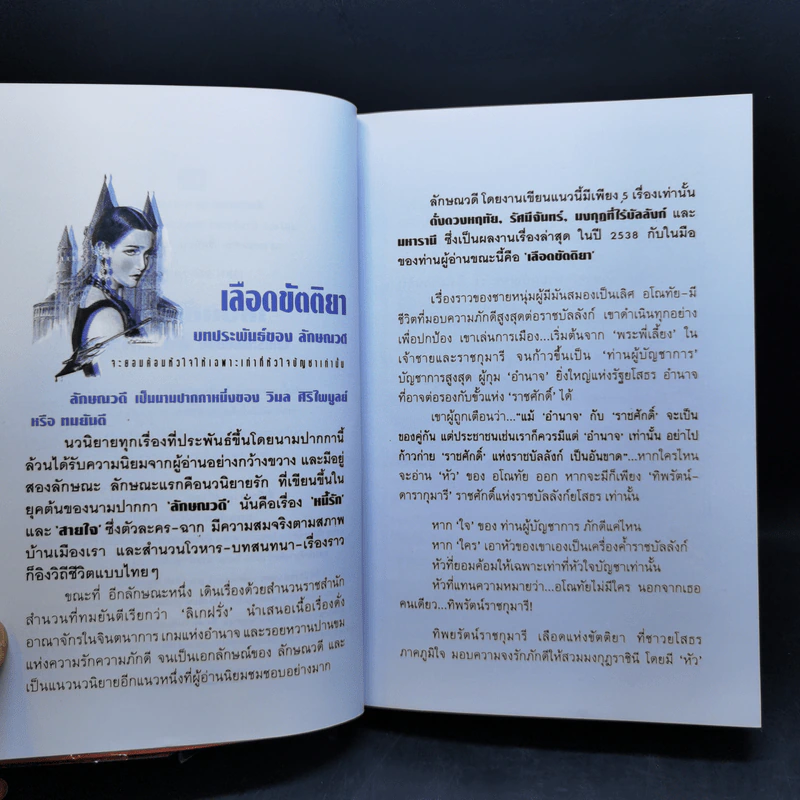 เลือดขัตติยา
บทประพันธ์ของ ลักษณวดี
จะยอมค้อมหัวใจให้เฉพาะเท่าที่หัวใจบัญชาเท่านั้น
ลักษณวดี เป็นนามปากกาหนึ่งของ วิมล ศิริไพบูลย์
หรือ ทมยันตี
นวนิยายทุกเรื่องที่ประพันธ์ขึ้นโดยนามปากกานี้
ล้วนได้รับความนิยมจากผู้อ่านอย่างกว้างขวาง และมีอยู่
สองลักษณะ ลักษณะแรกคือนวนิยายรัก ที่เขียนขึ้นใน
ยุคต้นของนามปากกา 'ลักษณวดี' นั่นคือเรื่อง 'หนี้รัก'
และ 'สายใจ' ซึ่งตัวละคร-ฉาก มีความสมจริงตามสภาพ
บ้านเมืองเรา และสำนวนโวหาร-บทสนทนา-เรื่องราว
ก็อิงวิถีชีวิตแบบไทยๆ
ขณะที่ อีกลักษณะหนึ่ง เดินเรื่องด้วยสำนวนราชสำนัก
สำนวนที่ทมยันตีเรียกว่า 'ลิเกฝรั่ง' นำเสนอเนื้อเรื่องดั่ง
อาณาจักรในจินตนาการ เกมแห่งอำนาจ และรอยหวานปานขม
แห่งความรักความภักดี จนเป็นเอกลักษณ์ของ ลักษณวดี และ
เป็นแนวนวนิยายอีกแนวหนึ่งที่ผู้อ่านนิยมชมชอบอย่างมาก
ลักษณวดี โดยงานเขียนแนวนี้มีเพียง 5 เรื่องเท่านั้น
ดั่งดวงหฤทัย, รัศมีจันทร์, มงกุฎที่ไร้บัลลังก์ และ
มหารานี ซึ่งเป็นผลงานเรื่องล่าสุด ในปี 2538 กับในมือ
ของท่านผู้อ่านขณะนี้คือ 'เลือดขัตติยา'
เรื่องราวของชายหนุ่มผู้มีมันสมองเป็นเลิศ อโณทัย-มี
ชีวิตที่มอบความภักดีสูงสุดต่อราชบัลลังก์ เขาดำเนินทุกอย่าง
เพื่อปกป้อง เขาเล่นการเมือง...เริ่มต้นจาก 'พระพี่เลี้ยง' ใน
เจ้าชายและราชกุมารี จนก้าวขึ้นเป็น 'ท่านผู้บัญชาการ'
บัญชาการสูงสุด ผู้กุม 'อำนาจ' ยิ่งใหญ่แห่งรัฐยโสธร อำนาจ
ที่อาจต่อรองกับขั้วแห่ง 'ราชศักดิ์' ได้
เขาผู้ถูกเตือนว่า..."แม้ 'อำนาจ' กับ 'ราชศักดิ์' จะเป็น
ของคู่กัน แต่ประชาชนเช่นเราก็ควรมีแต่ 'อำนาจ' เท่านั้น อย่าไป
ก้าวก่าย 'ราชศักดิ์' แห่งราชบัลลังก์ เป็นอันขาด"...หากใครไหน
จะอ่าน 'หัว' ของ อโณทัย ออก หากจะมีก็เพียง 'ทิพรัตน์-
ดารากุมารี' ราชศักดิ์แห่งราชบัลลังก์ยโสธร เท่านั้น
หาก 'ใจ' ของ ท่านผู้บัญชาการ ภักดีแค่ไหน
หาก 'ใคร' เอาหัวของเขาเองเป็นเครื่องค้ำราชบัลลังก์
หัวที่ยอมค้อมให้เฉพาะเท่าที่หัวใจบัญชาเท่านั้น
หัวที่แทนความหมายว่า...อโณทัยไม่มีใคร นอกจากเธอ
คนเดียว...ทิพรัตน์ราชกุมารี!
ทิพยรัตน์ราชกุมารี เลือดแห่งขัตติยา ที่ชาวยโสธร
ภาคภูมิใจ มอบความจงรักภักดีให้สวมมงกุฎราชินี โดยมี 'หัว'